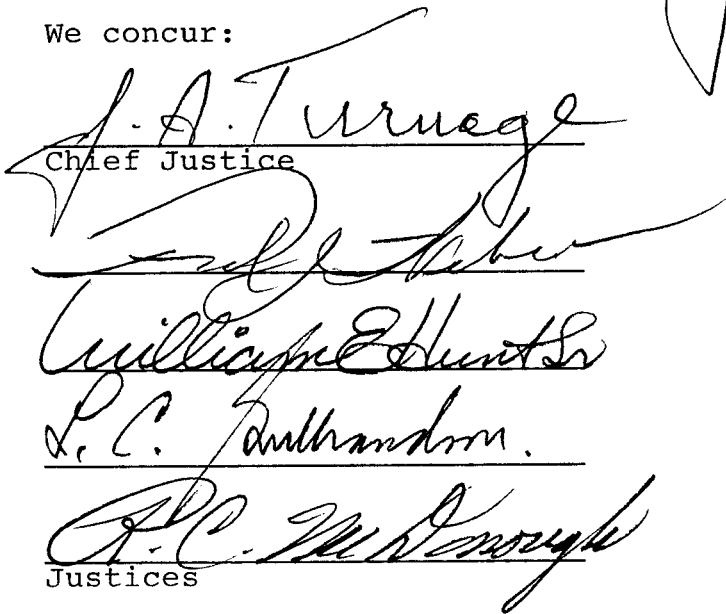 We concur:
J. A. Turnage
Chief Justice
Fred J. Weber
William E Hunt Sr
L. C. Gulbrandson.
R. C. McDonough
Justices